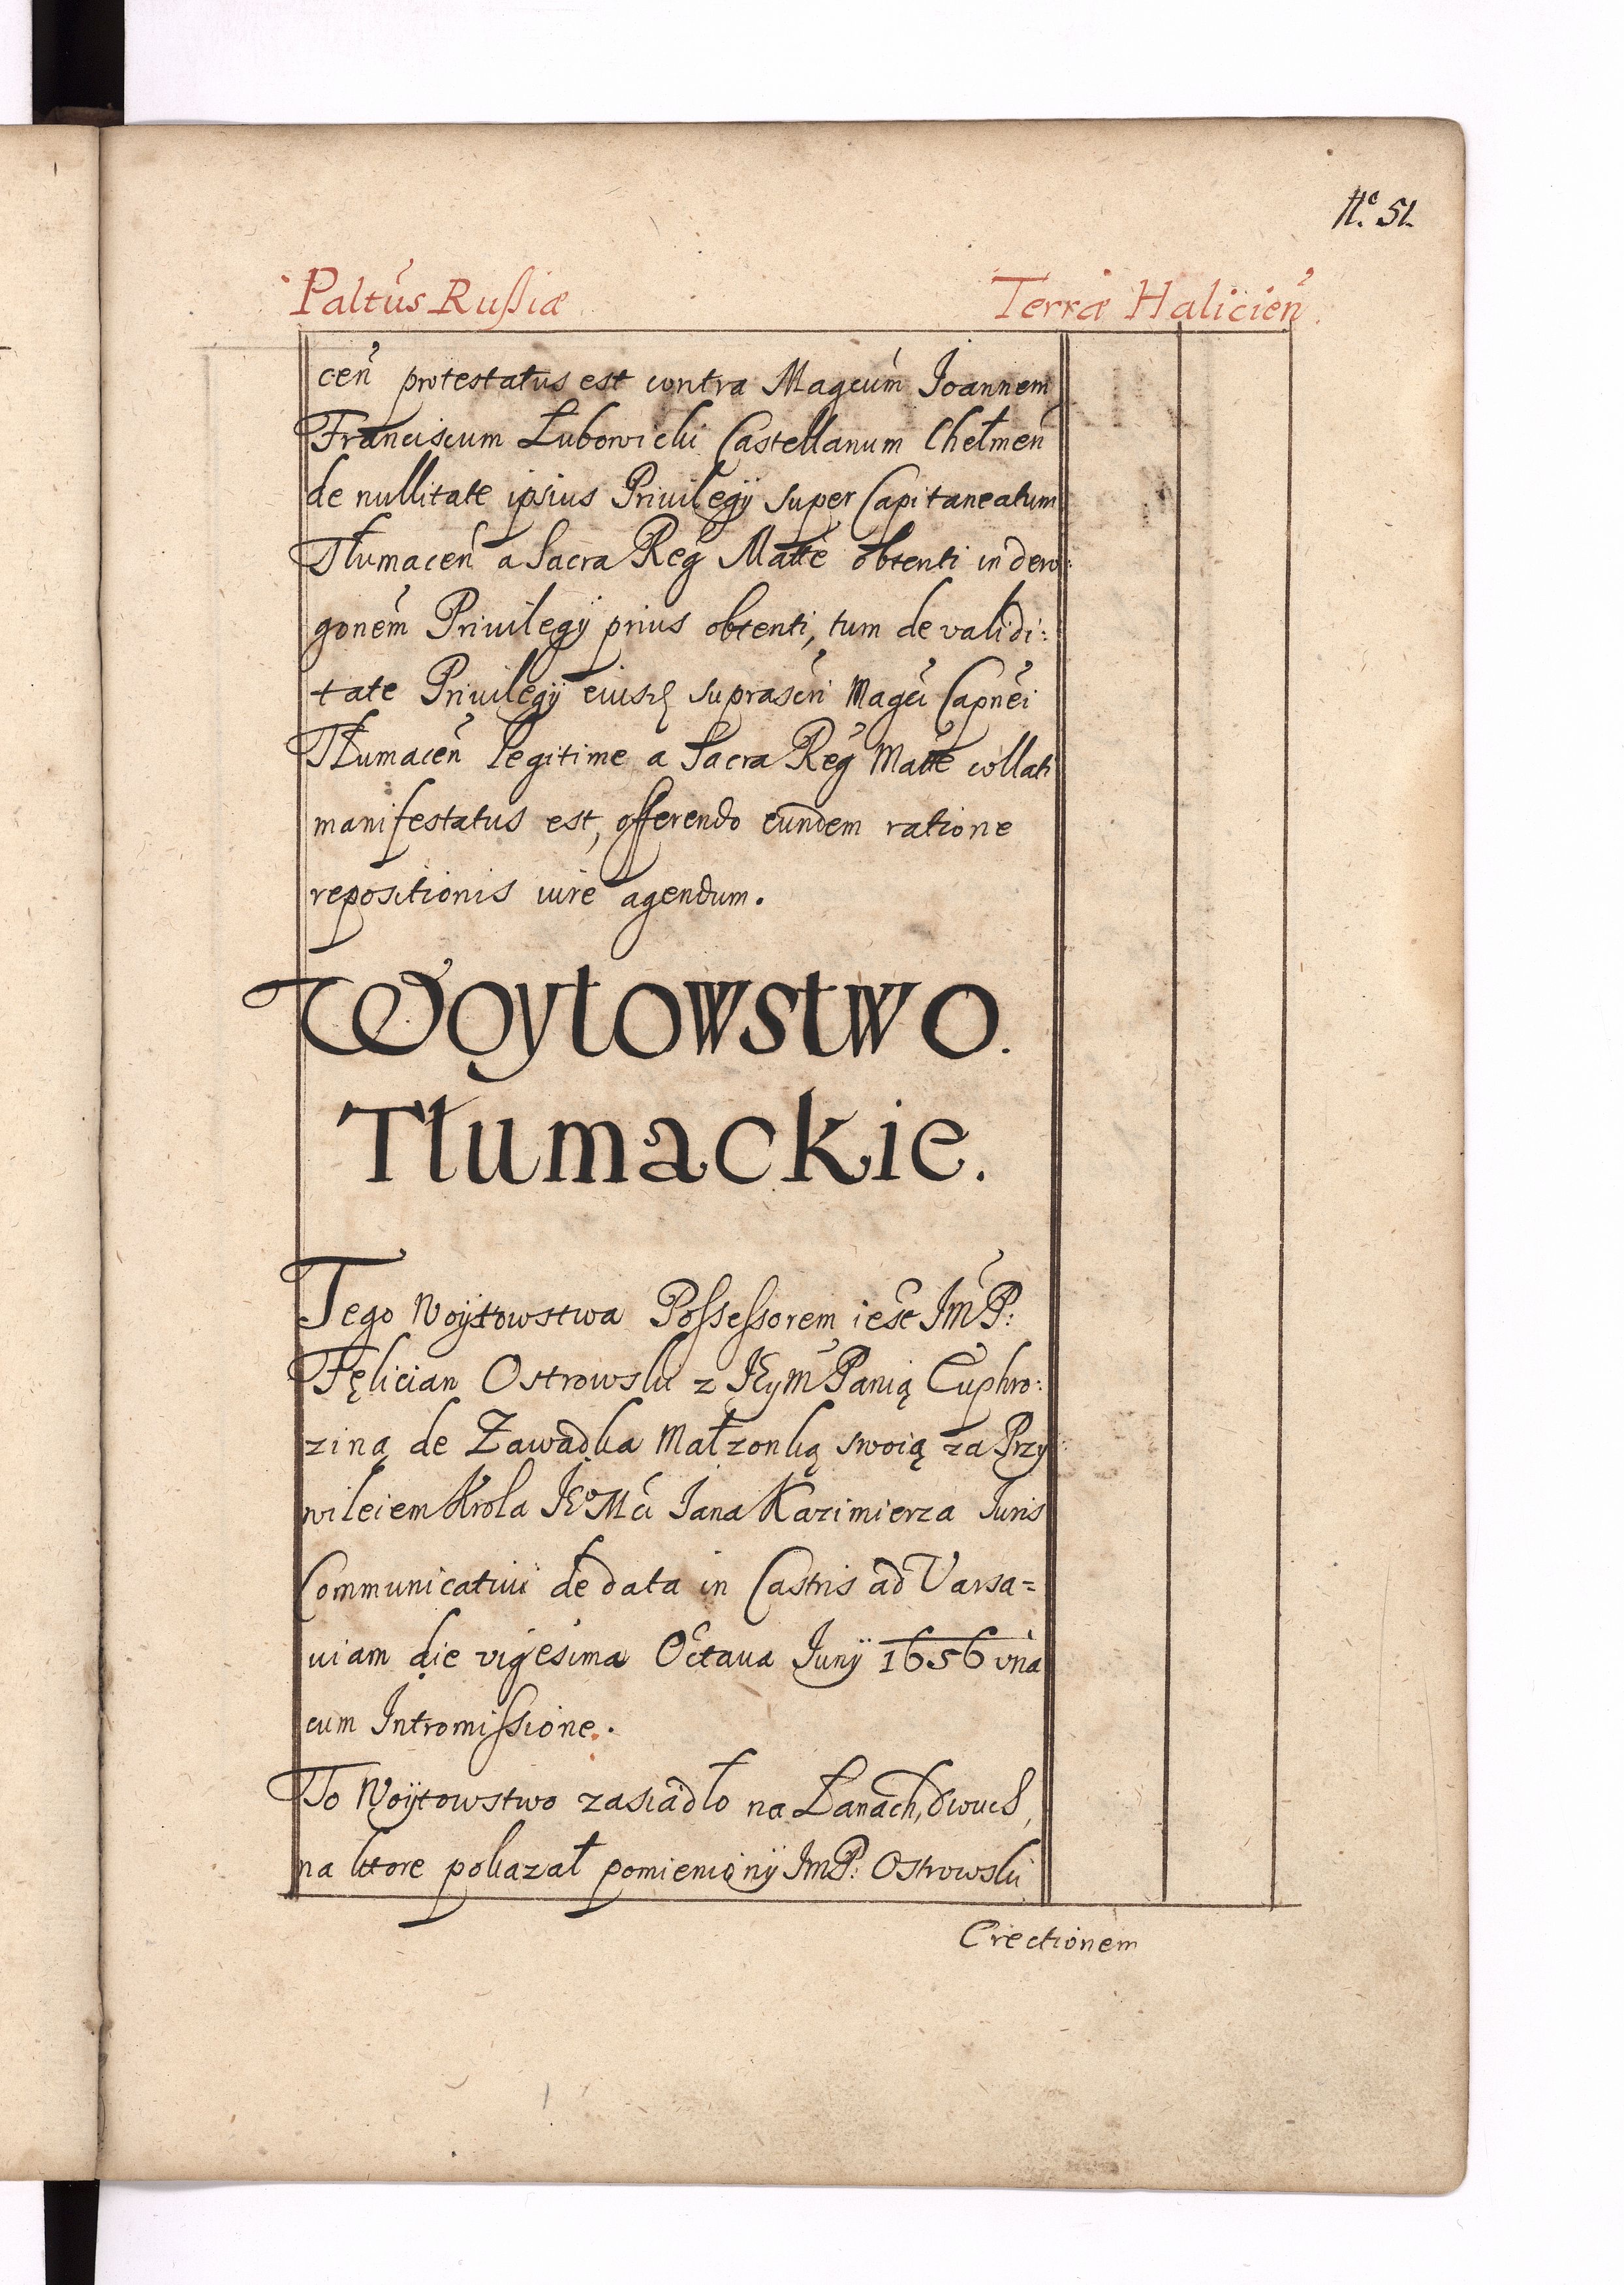 Nº. 51.
Paltus Rußiæ Terræ Halicien̄.
cen̄ protestatus est contra Magcum Joannem
Franciscum Łubowicki Castellanum Chełmen̄
de nullitate ipsius Priuilegÿ super Capitaneatum
Tłumacen̄ a Sacra Reg Matte obtenti in dero:
gonem Priuilegÿ prius obtenti, tum de validi:
tate Priuilegÿ eiusd suprascri Magci Capnei
Tłumacen̄ legitime a Sacra Reg Matte collati
manifestatus est, offerendo eundem ratione
repositionis iure agendum.
Woytowstwo.
Tłumackie.
Tego Woÿtowstwa Possessorem iest JmP:
Fęlician Ostrowski z JEym Panią Euphro:
ziną de Zawadka Małzonką swoią za Przy:
wileiem Krola JEº Mci Jana Kazimierza Juris
Communicatiui de data in Castris ad Varsa=
uiam die vigesima Octaua Junÿ 1656 vna
cum Intromissione.
To Woÿtowstwo zasiadło na Łanach, dwuch,
na ktore pokazał pomieniony JmP: Ostrowski
Erectionem